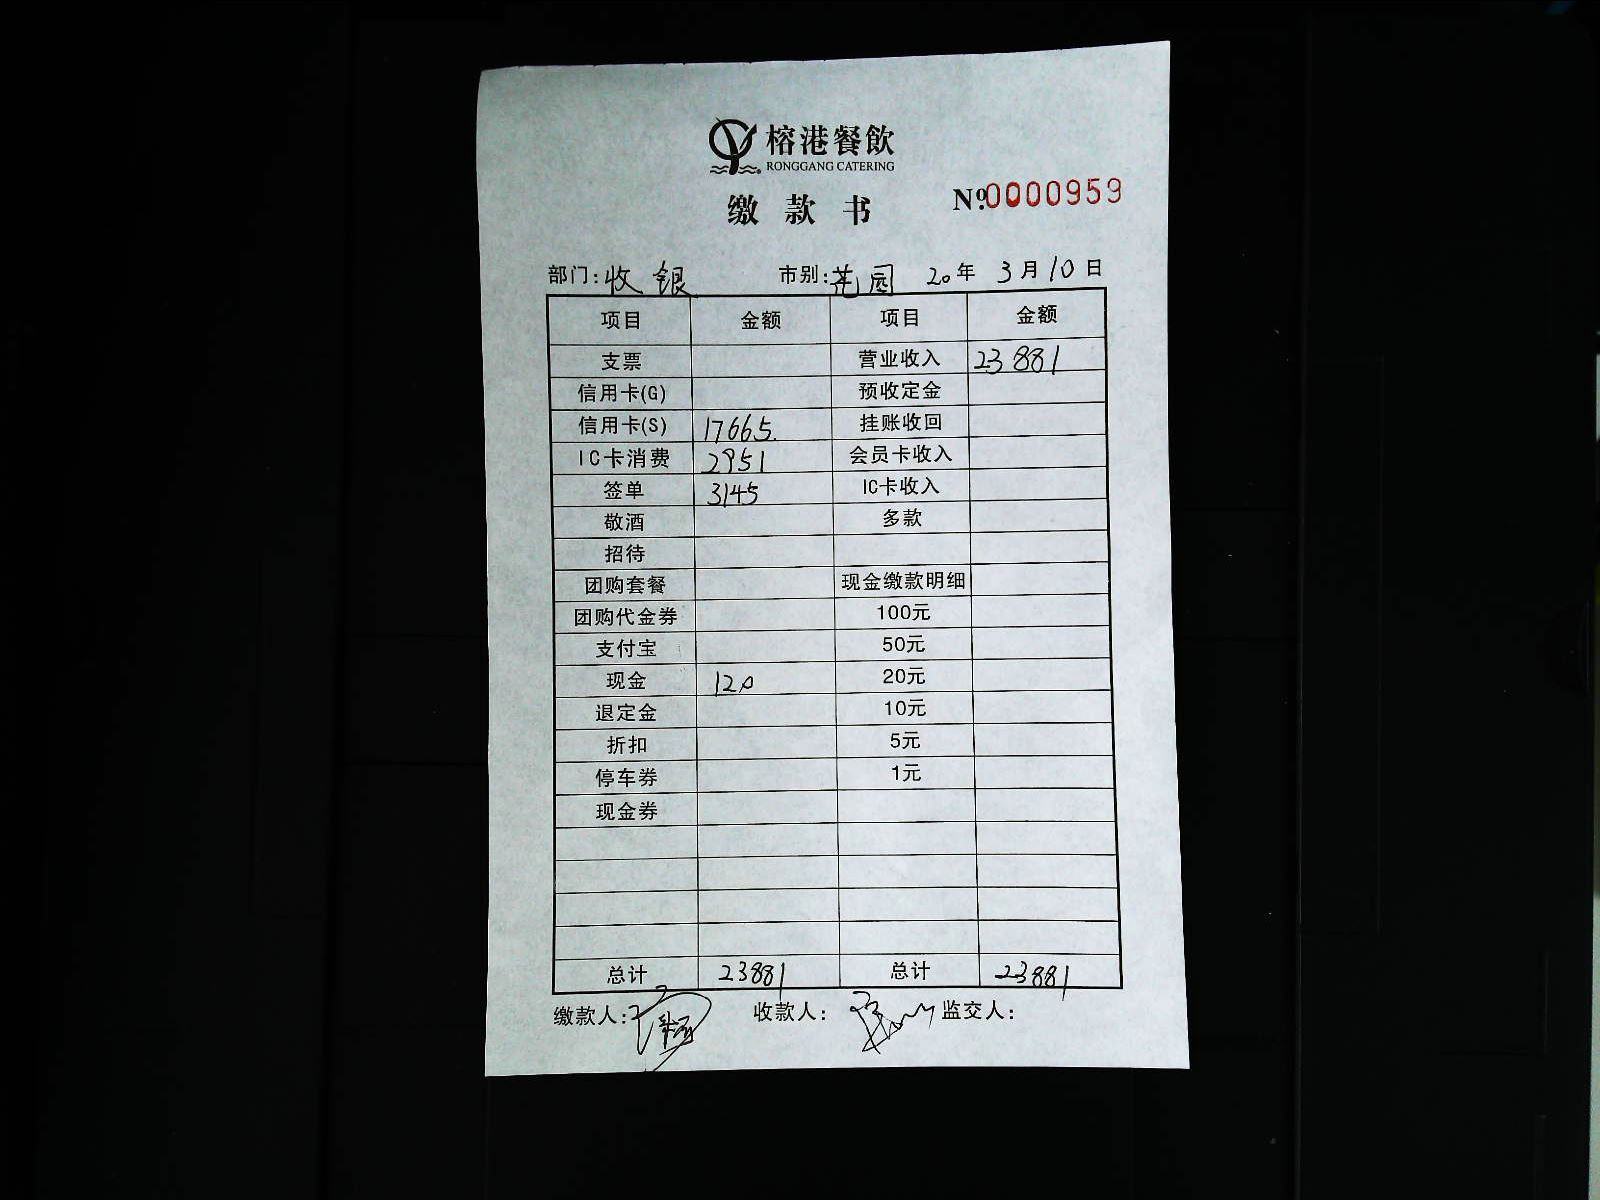 榕港餐飲
RONGGANG CATERING
缴款书 Nº:0000959
部门:收银 市别:花园 20年3月10日
项目 金额 项目 金额
支票 营业收入 23881
信用卡(G) 预收定金
信用卡(S) 17665. 挂账收回
IC卡消费 2951 会员卡收入
签单 3145 IC卡收入
敬酒 多款
招待
团购套餐 现金缴款明细
团购代金券 100元
支付宝 50元
现金 120 20元
退定金 10元
折扣 5元
停车券 1元
现金券
总计 23881 总计 23881
缴款人: 收款人: 监交人: